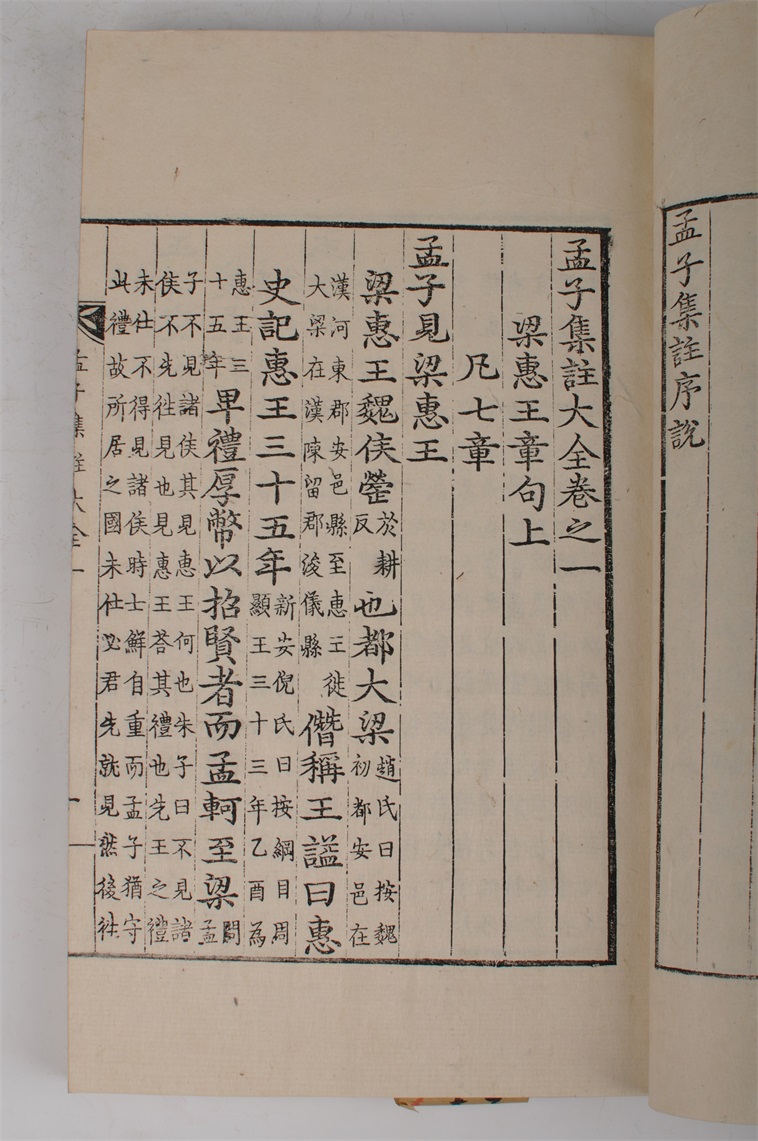 孟子集註序說
孟子集註大全卷之一
梁惠王章句上
凡七章
孟子見梁惠王
梁惠王魏侯罃於耕反也都大梁趙氏曰按魏初都安邑在
漢河東郡安邑縣至惠王徙大梁在漢陳留郡浚儀縣僭稱王諡曰惠
史記惠王三十五年新安倪氏曰按綱目周顯王三十三年乙酉為
惠王三十五年卑禮厚幣以招賢者而孟軻至梁問孟
子不見諸侯其見惠王何也朱子曰不見諸侯不先徃見也見惠王荅其禮也先王之禮
未仕不得見諸侯時士鮮自重而孟子猶守此禮故所居之國未仕必君先就見然後徃
孟子集註大全一